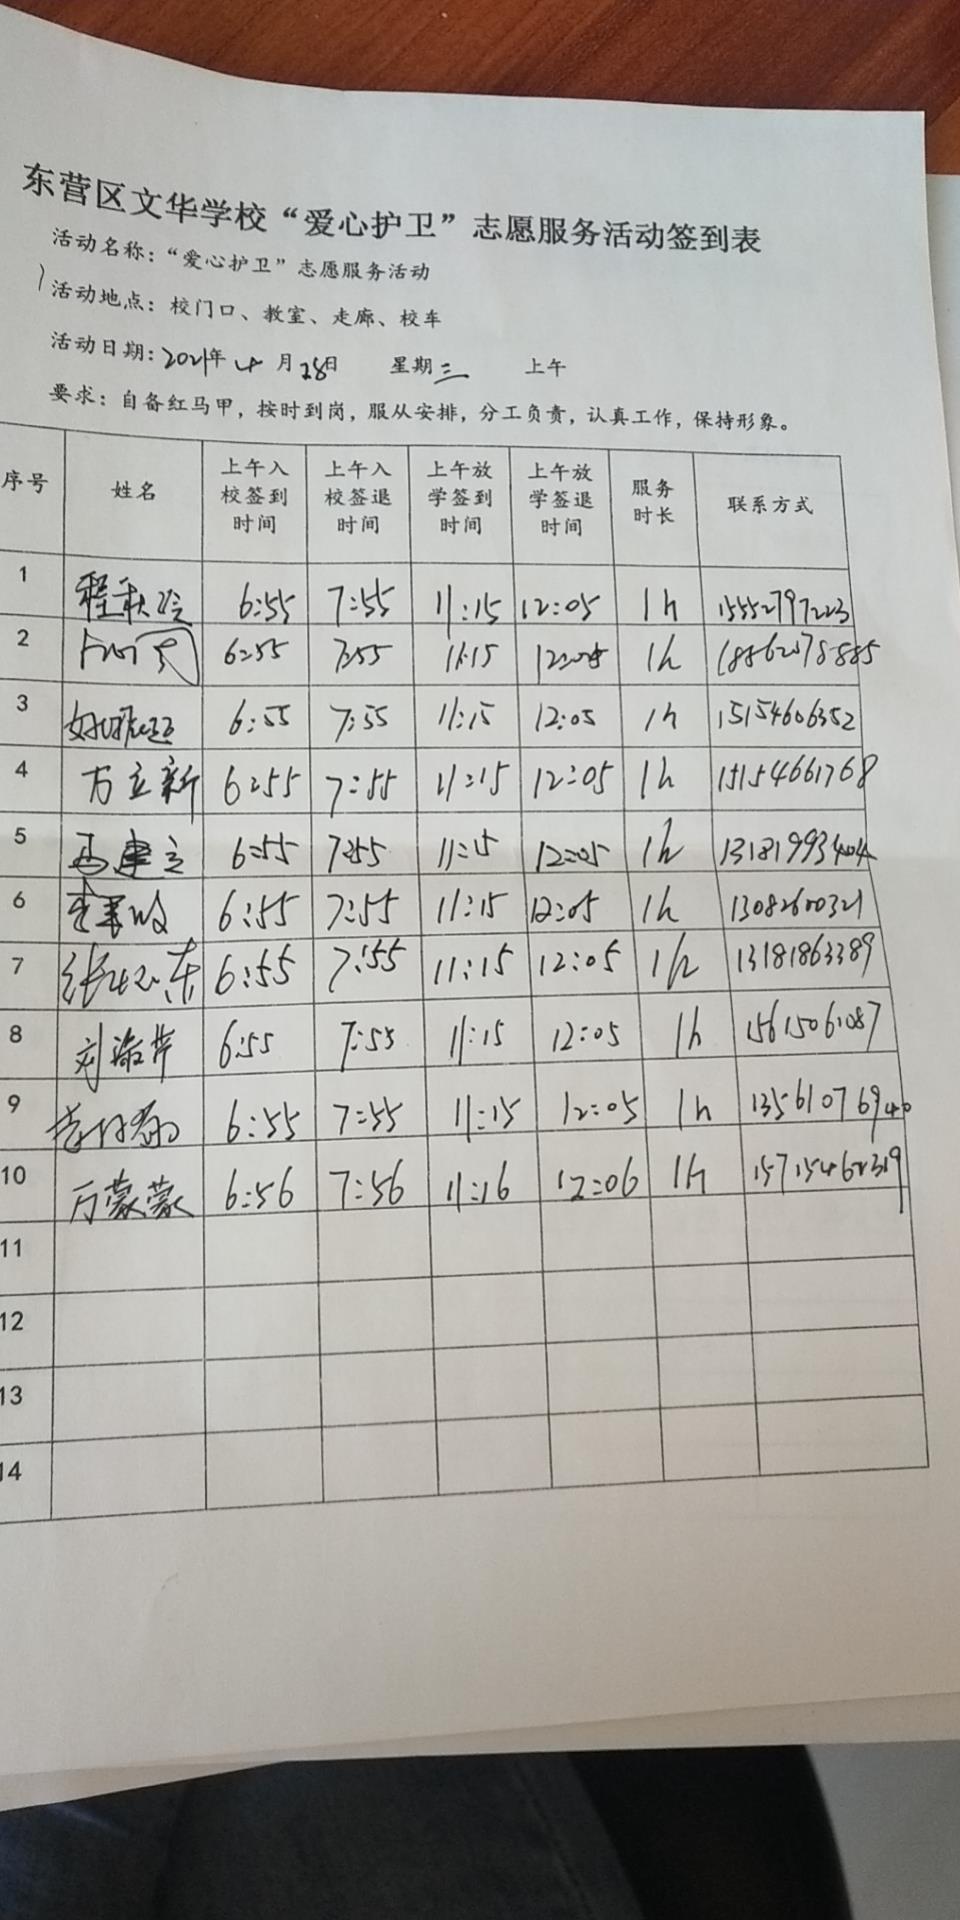 东营区文华学校“爱心护卫”志愿服务活动签到表
活动名称：“爱心护卫”志愿服务活动
活动地点：校门口、教室、走廊、校车
活动日期：2021年4月28日 星期三 上午
要求：自备红马甲，按时到岗，服从安排，分工负责，认真工作，保持形象。
序号 姓名 上午入校签到时间 上午入校签退时间 上午放学签到时间 上午放学签退时间 服务时长 联系方式
1 6:55 7:55 11:15 12:05 1h 15552797223
2 6:55 7:55 11:15 12:05 1h 18862078885
3 6:55 7:55 11:15 12:05 1h 15154606352
4 万立新 6:55 7:55 11:15 12:05 1h 15154661768
5 6:55 7:55 11:15 12:05 1h 13181993404
6 6:55 7:55 11:15 12:05 1h 13082600321
7 6:55 7:55 11:15 12:05 1h 13181863389
8 6:55 7:55 11:15 12:05 1h 15615061087
9 6:55 7:55 11:15 12:05 1h 13561076940
10 万蒙蒙 6:56 7:56 11:16 12:06 1h 15715462319
11
12
13
14